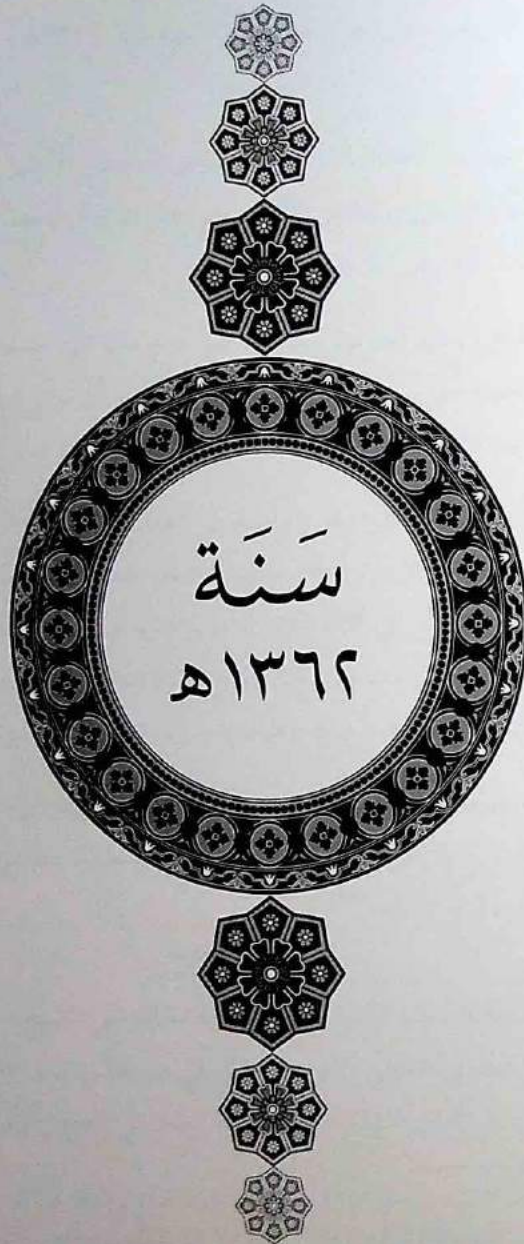 سَنَة
١٣٦٢هـ